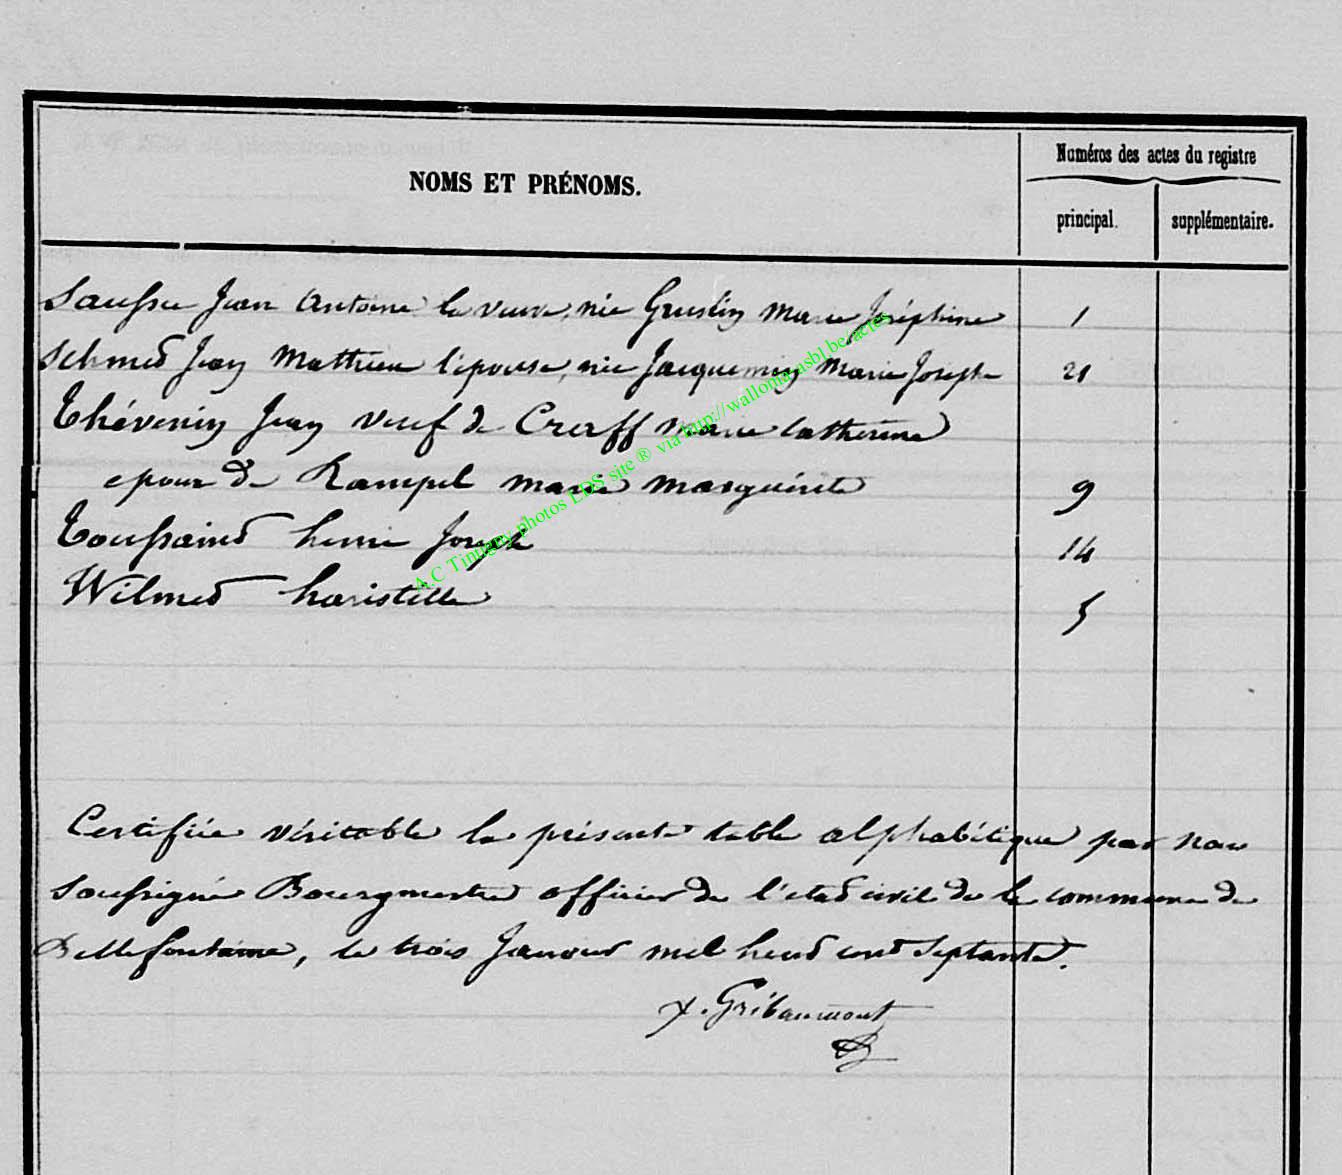 Numéros des actes du registre
NOMS ET PRÉNOMS.
principal. supplémentaire.
Jean Antoine la veuve née Marie Joséphine 1
Schmed Jean Mathieu l'épouse, née Jacquemin Marie Joseph 21
Thévenin Jean veuf de Marie Catherine
epoux de Rampel marie marguérite 9
Toussaint henri Joseph 14
Wilmed 5
A.C Tintigny photos EDS site ® via http://wallonia-asbl.be/actes
Certifiée véritable la présente table alphabétique par nous
soussigné Bourgmestre officier de l'état civil de la commune de
Bellefontaine, le trois Janvier mil huit cent septante.
Gribaumont